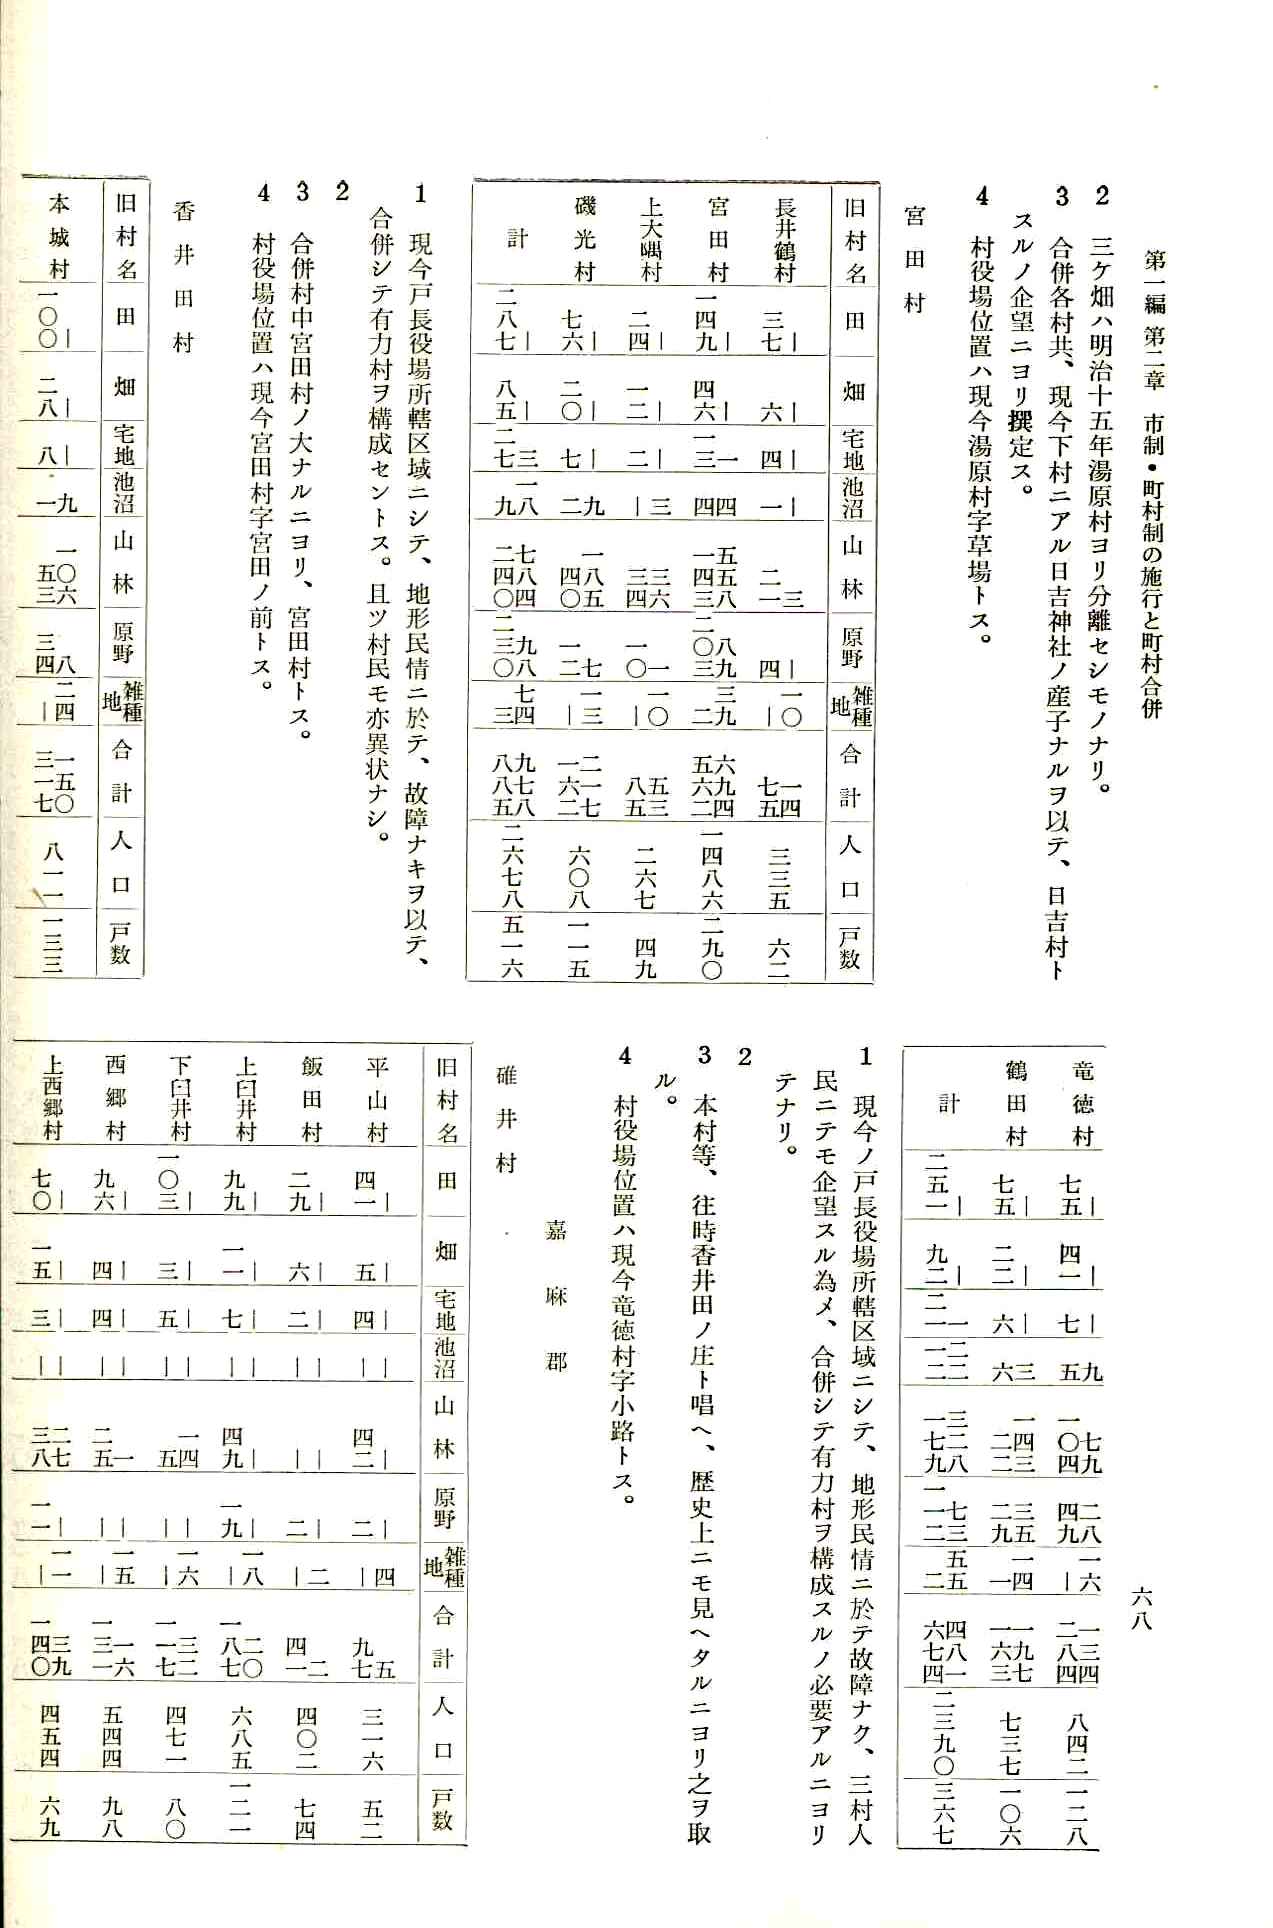 第一編 第二章　市制・町村制の施行と町村合併
六八
2　三ケ畑ハ明治十五年湯原村ヨリ分離セシモノナリ。
3　合併各村共、現今下村ニアル日吉神社ノ産子ナルヲ以テ、日吉村ト
スルノ企望ニヨリ撰定ス。
4　村役場位置ハ現今湯原村字草場トス。
宮田村
旧村名 田 畑 宅地 池沼 山林 原野 雑種地 合計 人口 戸数
長井鶴村 ｜ 三七 ｜ 六 ｜ 四 ｜ 一 三 二一 ｜ 四 一〇 ｜ 一四 七五 三三五 六二
宮田村 ｜ 一四九 ｜ 四六 一 一三 四 四 五五八 一四三 八九 二〇三 三九 二 六九四 五六二 一四八六 二九〇
上大隅村 ｜ 二四 ｜ 一二 ｜ 二 三 ｜ 三六 三四 一 一〇 一〇 ｜ 五三 八五 二六七 四九
磯光村 ｜ 七六 ｜ 二〇 ｜ 七 九 二 一八五 四〇 七 一二 一三 ｜ 二一七 一六二 六〇八 一一五
計 ｜ 二八七 ｜ 八五 三 二七 一八 九 七八四 二四〇 九八 二三〇 七四 三 九七八 八八五 二六七八 五一六
1　現今戸長役場所轄区域ニシテ、地形民情ニ於テ、故障ナキヲ以テ、
合併シテ有力村ヲ構成セントス。且ツ村民モ亦異状ナシ。
2
3　合併村中宮田村ノ大ナルニヨリ、宮田村トス。
4　村役場位置ハ現今宮田村字宮田ノ前トス。
香井田村
旧村名 田 畑 宅地 池沼 山林 原野 雑種地 合計 人口 戸数
本城村 ｜ 一〇〇 ｜ 二八 ｜ 八 九 一 一〇六 五三 八 三四 二四 ｜ 一五〇 三一七 八一一 一三三
竜徳村 ｜ 七五 ｜ 四一 ｜ 七 九 五 七九 一〇四 二八 四九 一六 ｜ 一三四 二八四 八四二 一二八
鶴田村 ｜ 七五 ｜ 二二 ｜ 六 三 六 一四三 二二 三五 二九 一四 一 一九七 一六三 七三七 一〇六
計 ｜ 二五一 ｜ 九二 一 二一 二二 一二 三二八 一七九 七三 一一二 五五 二 四八一 六七四 二三九〇 三六七
1　現今ノ戸長役場所轄区域ニシテ、地形民情ニ於テ故障ナク、三村人
民ニテモ企望スル為メ、合併シテ有力村ヲ構成スルノ必要アルニヨリ
テナリ。
2
3　本村等、往時香井田ノ庄ト唱ヘ、歴史上ニモ見ヘタルニヨリ之ヲ取
ル。
4　村役場位置ハ現今竜徳村字小路トス。
嘉麻郡
碓井村
旧村名 田 畑 宅地 池沼 山林 原野 雑種地 合計 人口 戸数
平山村 ｜ 四一 ｜ 五 ｜ 四 ｜ ｜ ｜ 四二 ｜ 二 四 ｜ 五 九七 三一六 五二
飯田村 ｜ 二九 ｜ 六 ｜ 二 ｜ ｜ ｜ ｜ ｜ 二 二 ｜ 二 四一 四〇二 七四
上臼井村 ｜ 九九 ｜ 一一 ｜ 七 ｜ ｜ ｜ 四九 ｜ 一九 一八 ｜ 二〇 一八七 六八五 一二一
下臼井村 ｜ 一〇三 ｜ 三 ｜ 五 ｜ ｜ 一四 五 ｜ ｜ 一六 ｜ 三二 一一七 四七一 八〇
西郷村 ｜ 九六 ｜ 四 ｜ 四 ｜ ｜ 一 二五 ｜ ｜ 一五 ｜ 一六 一三一 五四四 九八
上西郷村 ｜ 七〇 ｜ 一五 ｜ 三 ｜ ｜ 二七 三八 ｜ 一一 一一 ｜ 三九 一四〇 四五四 六九